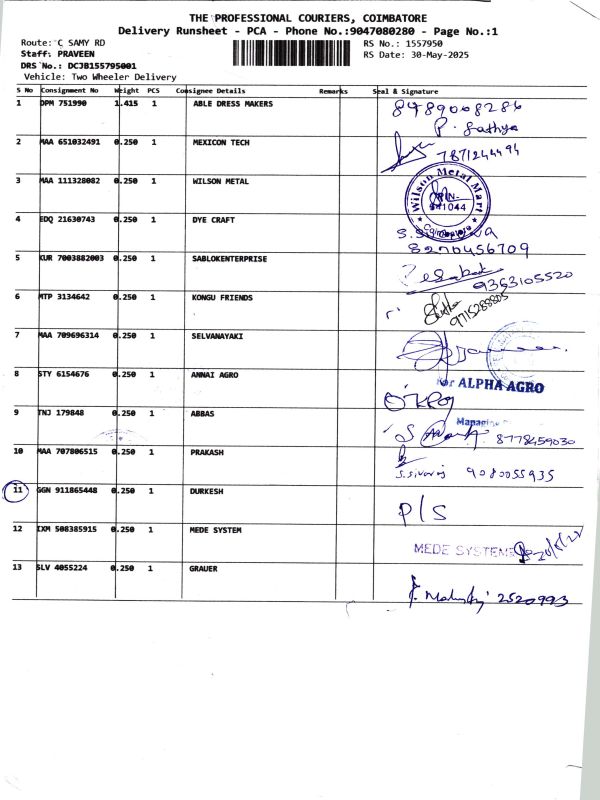 THE PROFESSIONAL COURIERS, COIMBATORE
Delivery Runsheet - PCA - Phone No.:9047080280 - Page No.:1
Route: C SAMY RD
RS No.: 1557950
Staff: PRAVEEN
RS Date: 30-May-2025
DRS No.: DCJB155795001
Vehicle: Two Wheeler Delivery
S No Consignment No Weight PCS Consignee Details Remarks Seal & Signature
1 DPM 751990 1.415 1 ABLE DRESS MAKERS 8489008286
P. Sathya
2 MAA 651032491 0.250 1 MEXICON TECH 7871244494
3 MAA 111328082 0.250 1 WILSON METAL
Wilson Metal Mart
PIN-
641044
Coimbatore
4 EDQ 21630743 0.250 1 DYE CRAFT
8270456709
5 KUR 7003882003 0.250 1 SABLOKENTERPRISE
9363105520
6 MTP 3134642 0.250 1 KONGU FRIENDS
9715288805
7 MAA 709696314 0.250 1 SELVANAYAKI
8 STY 6154676 0.250 1 ANNAI AGRO
For ALPHA AGRO
9 TNJ 179848 0.250 1 ABBAS
Managing
8778459030
10 MAA 707806515 0.250 1 PRAKASH
S.Sivaraj 9080055935
11 GGN 911865448 0.250 1 DURKESH
P/S
12 IXM 508385915 0.250 1 MEDE SYSTEM
MEDE SYSTEMS
13 SLV 4055224 0.250 1 GRAUER
2520993